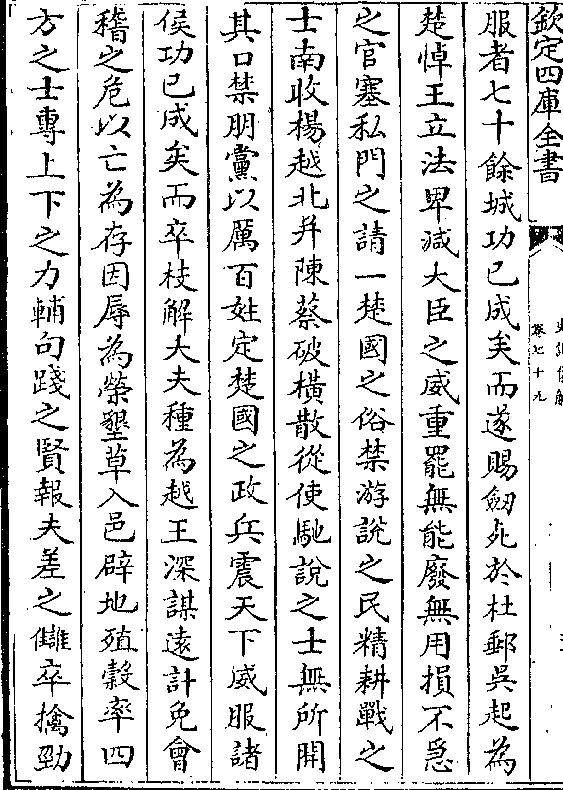 欽定四庫全書
卷七十九
服者七十餘城功已成矣而遂賜劒死於杜郵吳起為
楚悼王立法卑減大臣之威重罷無能廢無用損不急
之官塞私門之請一楚國之俗禁游說之民精耕戰之
士南收楊越北并陳蔡破橫散從使馳說之士無所開
其口禁朋黨以厲百姓定楚國之政兵震天下威服諸
侯功已成矣而卒枝解大夫種為越王深謀遠計免會
稽之危以亡為存因辱為榮墾草入邑辟地殖穀率四
方之士專上下之力輔句踐之賢報夫差之讎卒擒勁